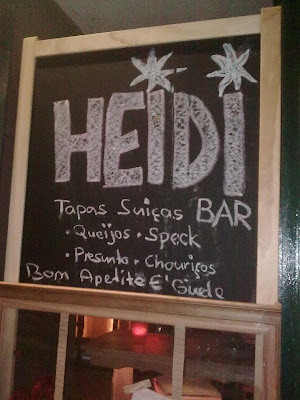 HEIDI
Tapas Suiças BAR
• Queijos • Speck
• Presunto • Chouriços
Bom Apetite